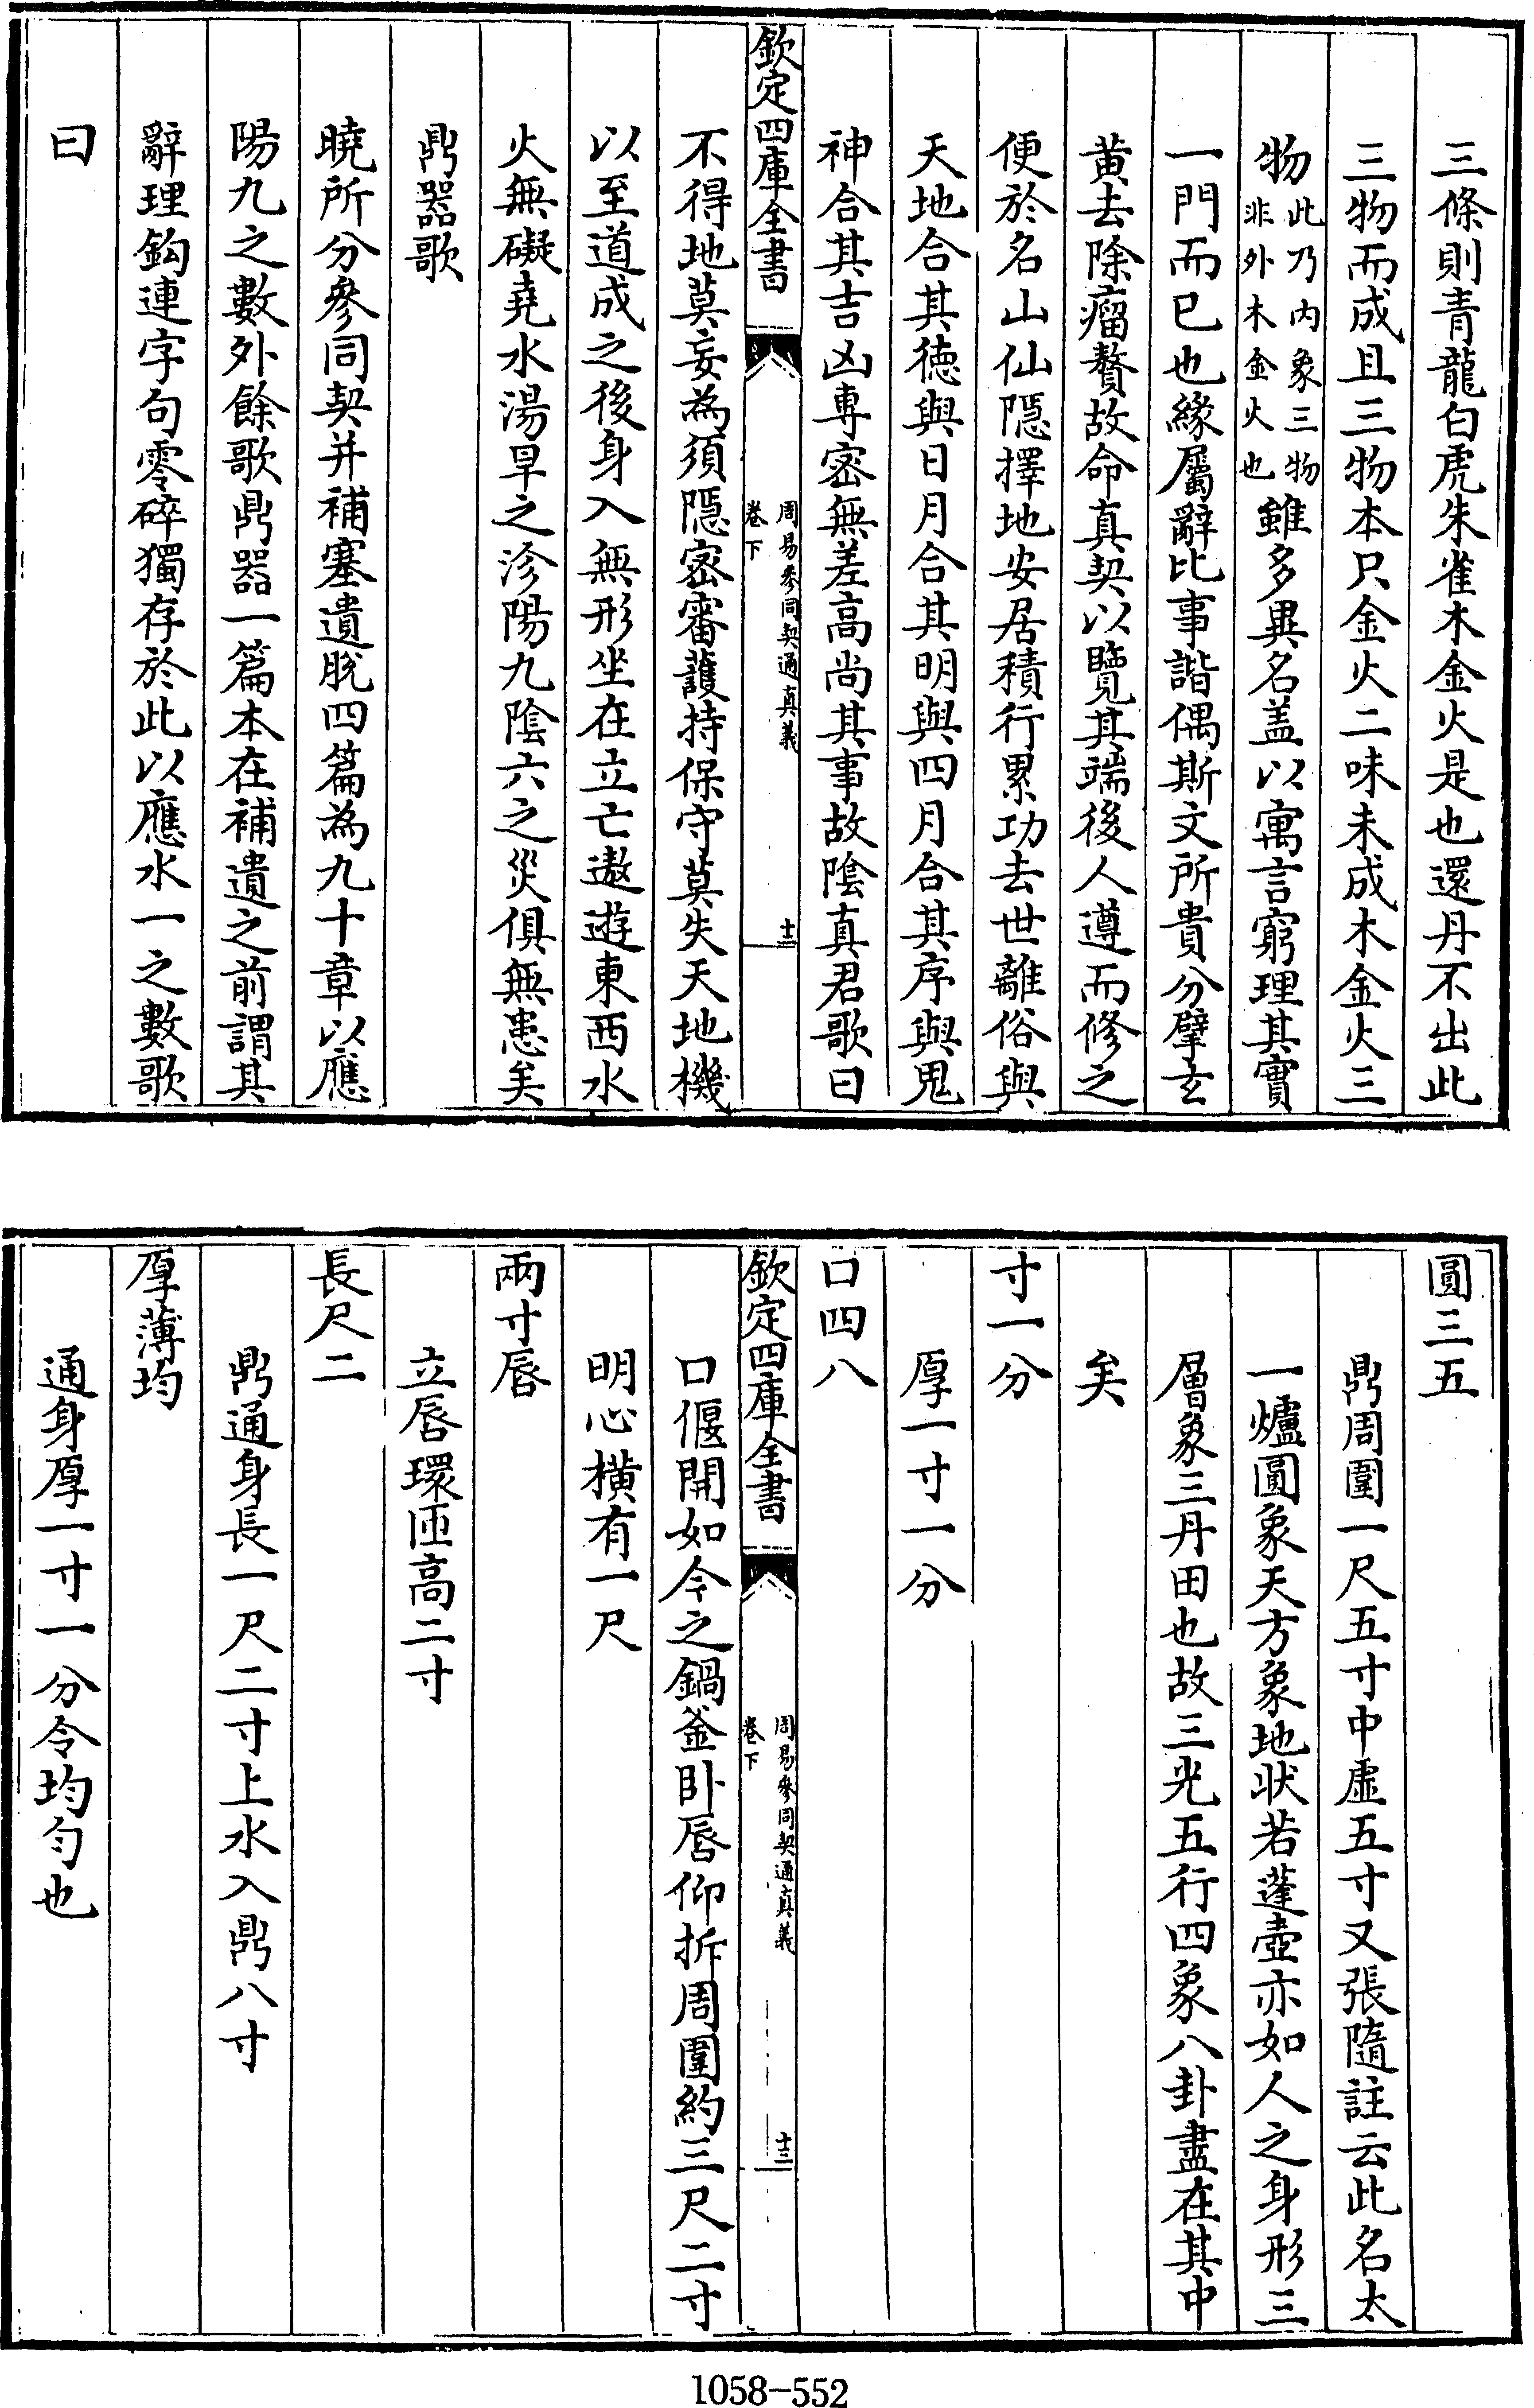 三條則青龍白虎朱雀木金火是也還丹不出此
三物而成且三物本只金火二味未成木金火三
物此乃内象三物非外木金火也雖多異名盖以寓言窮理其實
一門而已也緣屬辭比事諧偶斯文所貴分擘玄
黄去除瘤贅故命真契以覽其端後人遵而修之
便於名山仙隠擇地安居積行累功去世離俗與
天地合其德與日月合其明與四月合其序與鬼
神合其吉凶専宻無差高尚其事故陰真君歌曰
欽定四庫全書
周易參同契通真義
卷下
十二
不得地莫妄為須隠宻審護持保守莫失天地機
以至道成之後身入無形坐在立亡遨遊東西水
火無礙堯水湯旱之沴陽九陰六之災俱無患矣
鼎器歌
曉所分參同契并補塞遺脱四篇為九十章以應
陽九之數外餘歌鼎器一篇本在補遺之前謂其
辭理鈎連字句零碎獨存於此以應水一之數歌
曰
圓三五
鼎周圍一尺五寸中虛五寸又張隨註云此名太
一爐圓象天方象地狀若蓬壺亦如人之身形三
層象三丹田也故三光五行四象八卦盡在其中
矣
寸一分
厚一寸一分
口四八
欽定四庫全書
周易參同契通真義
卷下
十三
口偃開如今之鍋釜卧唇仰折周圍約三尺二寸
明心橫有一尺
兩寸唇
立唇環匝高二寸
長尺二
鼎通身長一尺二寸上水入鼎八寸
厚薄均
通身厚一寸一分令均匀也
1058-552